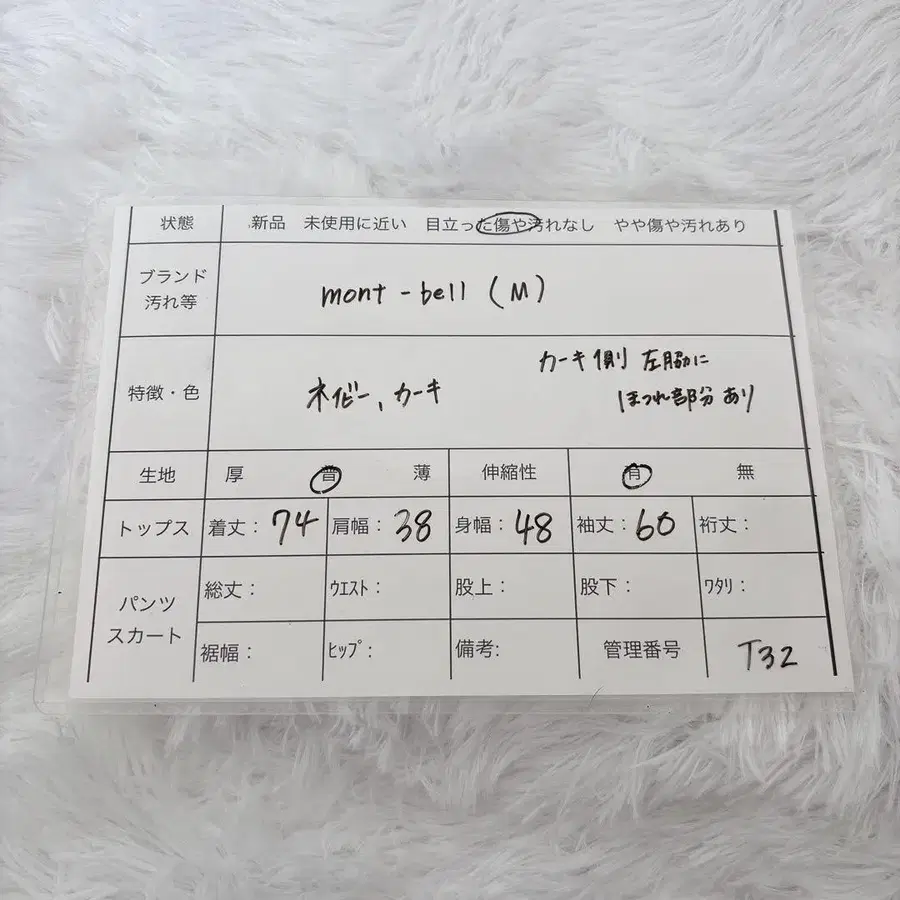 状態 新品 未使用に近い 目立った傷や汚れなし やや傷や汚れあり
ブランド
汚れ等
mont-bell (M)
特徴・色
ネイビー、カーキ
カーキ側 左脇に
ほつれ部分あり
生地 厚 普 薄 伸縮性 有 無
トップス 着丈: 74 肩幅: 38 身幅: 48 袖丈: 60 裄丈:
パンツ
スカート
総丈: ウエスト: 股上: 股下: ワタリ:
裾幅: ヒップ: 備考: 管理番号 T32